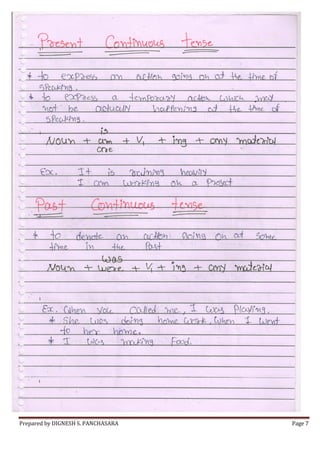 Present Continuous tense
* to express an action going on at the time of
speaking.
* to express a temporary action which may
not be actually happening at the time of
speaking.
is
Noun + am + V1 + ing + any material
are
Ex. It is raining heavily
I am working on a Project
Past Continuous tense
* to denote an action going on at some
time in the Past
was
Noun + were + V1 + ing + any material
Ex. When you called me, I was Playing.
* She was doing home work, when I went
to her home.
* I was making Food.
Prepared by DIGNESH S. PANCHASARA Page 7